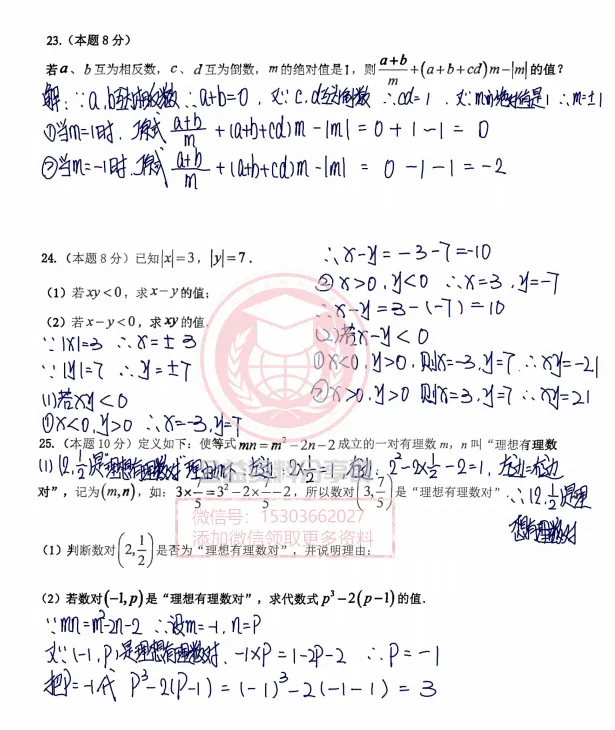 23.（本题 8 分）
若a、b互为相反数，c、d互为倒数，m的绝对值是1，则(a+b)/m+(a+b+cd)m-|m|的值?
解：∵a、b互为相反数 ∴a+b=0，又∵c、d互为倒数 ∴cd=1 又∵m的绝对值是1 ∴m=±1
①当m=1时，原式 (a+b)/m + (a+b+cd)m - |m| = 0+1-1 = 0
②当m=-1时，原式 (a+b)/m + (a+b+cd)m - |m| = 0-1-1 = -2
24.（本题 8 分）已知|x|=3，|y|=7．
（1）若xy<0，求x-y的值;
（2）若x-y<0，求xy的值.
∵|x|=3 ∴x=±3
∵|y|=7 ∴y=±7
(1)若xy<0
①x<0,y>0 ∴x=-3,y=7
∴x-y=-3-7=-10
②x>0,y<0 ∴x=3,y=-7
∴x-y=3-(-7)=10
(2)若x-y<0
①x<0,y>0,则x=-3,y=7 ∴xy=-21
②x>0,y>0 则x=3,y=7 ∴xy=21
25.（本题 10 分）定义如下：使等式mn=m²-2n-2成立的一对有理数 m，n 叫“理想有理数
(1)(2,1/2)是“理想有理数对”理由如下 左边：2×1/2=1 右边：2²-2×1/2-2=1，左边=右边
对”，记为(m,n)，如：3×7/5=3²-2×7/5-2，所以数对(3,7/5)是“理想有理数对”．
∴(2,1/2)是理
想有理数对
微信号：15303662027
添加微信领取更多资料
（1）判断数对(2,1/2)是否为“理想有理数对”，并说明理由;
（2）若数对(-1,p)是“理想有理数对”，求代数式p³-2(p-1)的值.
∵mn=m²-2n-2 ∴设m=-1,n=P
又∵(-1,P)是理想有理数对，-1×P=1-2P-2 ∴P=-1
把P=-1代 P³-2(P-1)=(-1)³-2(-1-1)=3